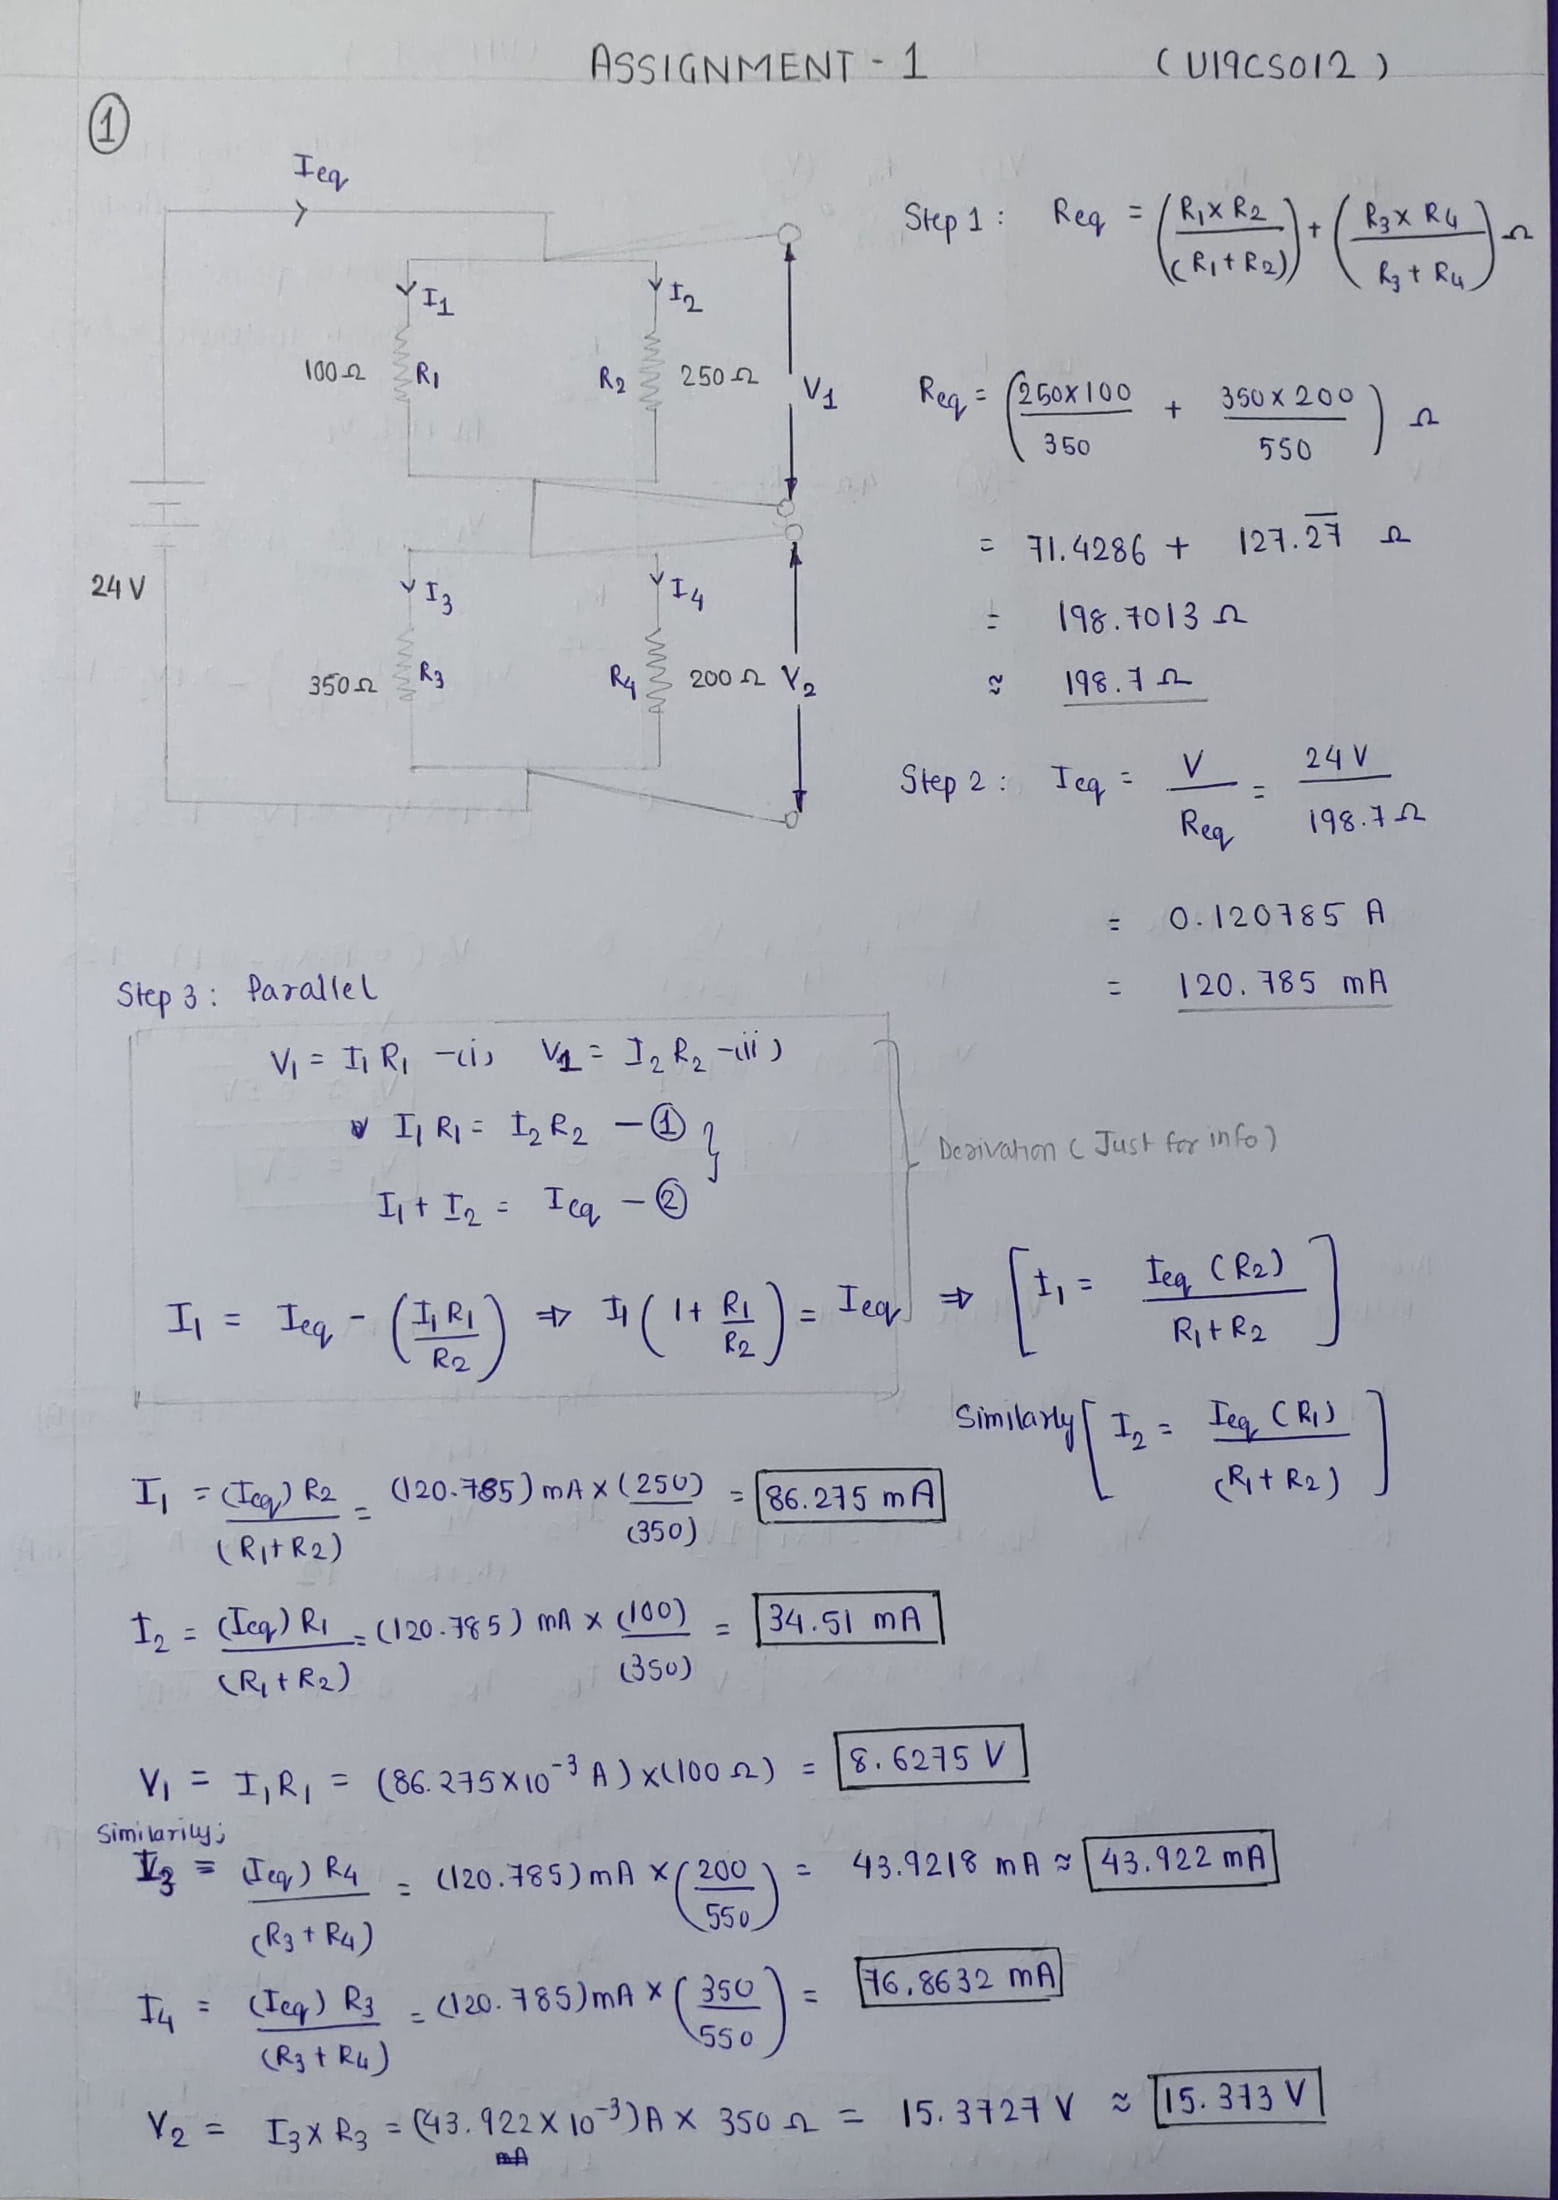 ASSIGNMENT - 1 (U19CS012)
①
Ieq
I1 I2
100Ω R1 R2 250Ω V1
24 V
I3 I4
350Ω R3 R4 200Ω V2
Step 1 : Req = (R1×R2 / (R1+R2)) + (R3×R4 / R3+R4) Ω
Req = (250×100 / 350 + 350×200 / 550) Ω
= 71.4286 + 127.2̅7̅ Ω
= 198.7013 Ω
≈ 198.7 Ω
Step 2 : Ieq = V / Req = 24 V / 198.7 Ω
= 0.120785 A
= 120.785 mA
Step 3 : Parallel
V1 = I1 R1 -(i) V1 = I2 R2 -(ii)
I1 R1 = I2 R2 - ①
I1 + I2 = Ieq - ②
Derivation (Just for info)
I1 = Ieq - (I1 R1 / R2) ⇒ I1 (1 + R1 / R2) = Ieq ⇒ [I1 = Ieq (R2) / R1+R2]
Similarly [I2 = Ieq (R1) / (R1+R2)]
I1 = (Ieq) R2 / (R1+R2) = (120.785) mA × (250) / (350) = 86.275 mA
I2 = (Ieq) R1 / (R1+R2) = (120.785) mA × (100) / (350) = 34.51 mA
V1 = I1 R1 = (86.275×10⁻³ A) × (100 Ω) = 8.6275 V
Similarily;
I3 = (Ieq) R4 / (R3+R4) = (120.785) mA × (200 / 550) = 43.9218 mA ≈ 43.922 mA
I4 = (Ieq) R3 / (R3+R4) = (120.785) mA × (350 / 550) = 76.8632 mA
V2 = I3 × R3 = (43.922 × 10⁻³) A × 350 Ω = 15.3727 V ≈ 15.373 V
mA